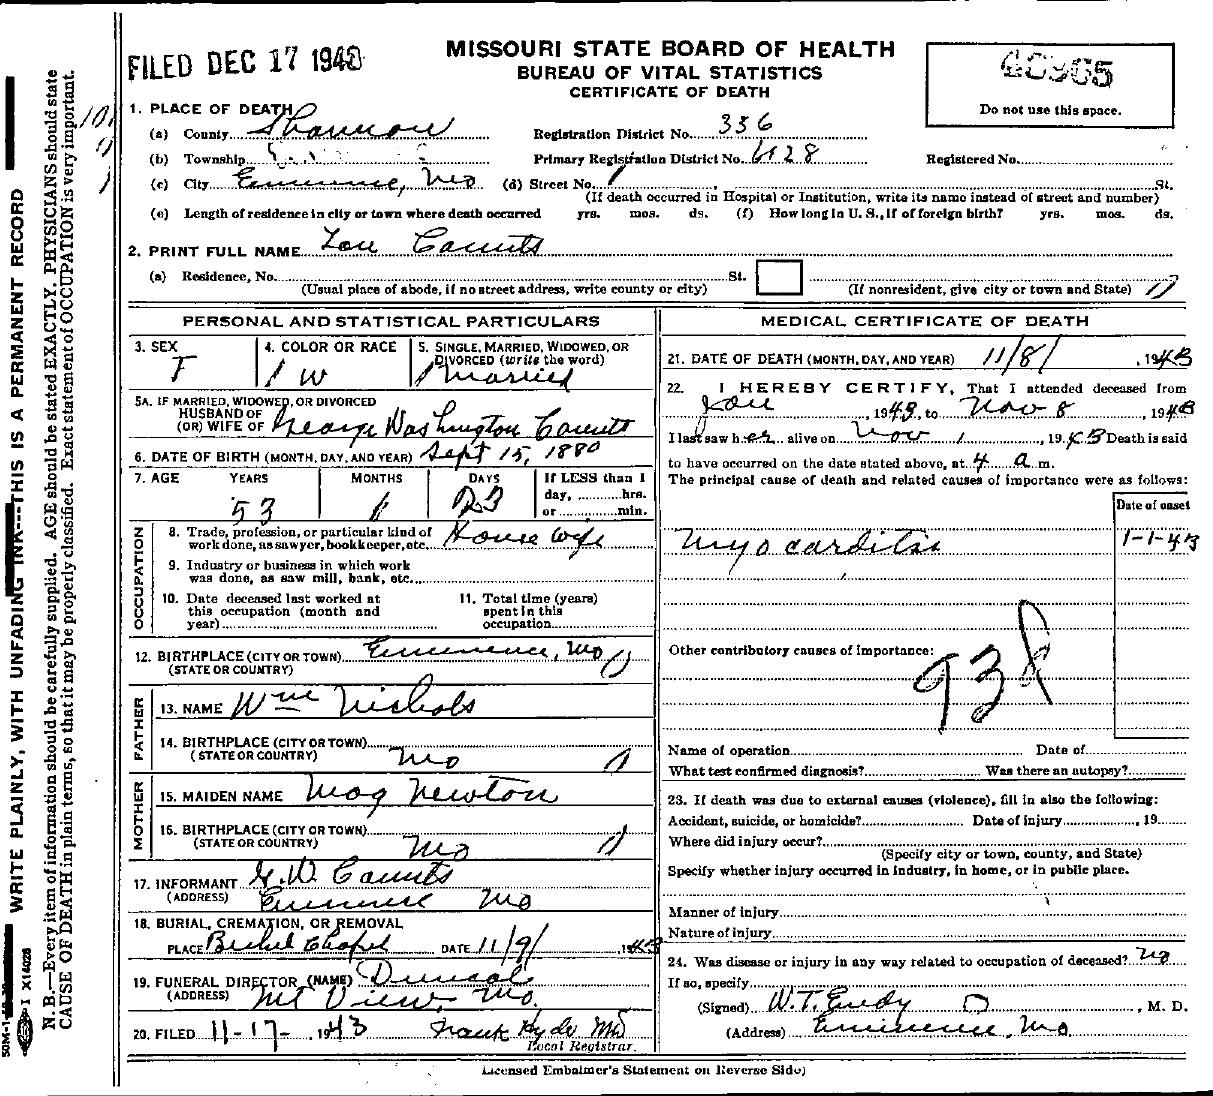 FILED DEC 17 1943
MISSOURI STATE BOARD OF HEALTH
BUREAU OF VITAL STATISTICS
CERTIFICATE OF DEATH
Do not use this space.
1. PLACE OF DEATH
(a) County Shannon Registration District No. 336
(b) Township Primary Registration District No. 4128 Registered No.
(c) City Eminence, Mo (d) Street No. St.
(If death occurred in Hospital or Institution, write its name instead of street and number)
(e) Length of residence in city or town where death occurred yrs. mos. ds. (f) How long in U. S., if of foreign birth? yrs. mos. ds.
2. PRINT FULL NAME Lou Counts
(a) Residence, No. St.
(Usual place of abode, if no street address, write county or city) (If nonresident, give city or town and State)
PERSONAL AND STATISTICAL PARTICULARS
3. SEX F
4. COLOR OR RACE W
5. SINGLE, MARRIED, WIDOWED, OR DIVORCED (write the word) Married
5A. IF MARRIED, WIDOWED, OR DIVORCED
HUSBAND OF
(OR) WIFE OF George Washington Counts
6. DATE OF BIRTH (MONTH, DAY, AND YEAR) Sept 15, 1880
7. AGE YEARS MONTHS DAYS If LESS than 1
day, hrs.
or min.
53 1 23
OCCUPATION
8. Trade, profession, or particular kind of
work done, as sawyer, bookkeeper, etc. House wife
9. Industry or business in which work
was done, as saw mill, bank, etc.
10. Date deceased last worked at
this occupation (month and
year)
11. Total time (years)
spent in this
occupation
12. BIRTHPLACE (CITY OR TOWN) Eminence, Mo
(STATE OR COUNTRY)
FATHER
13. NAME Wm Nichols
14. BIRTHPLACE (CITY OR TOWN)
(STATE OR COUNTRY) Mo
MOTHER
15. MAIDEN NAME Mag Newton
16. BIRTHPLACE (CITY OR TOWN)
(STATE OR COUNTRY) Mo
17. INFORMANT G. W. Counts
(ADDRESS) Eminence Mo
18. BURIAL, CREMATION, OR REMOVAL
PLACE Chapel DATE 11/9/ 1943
19. FUNERAL DIRECTOR (NAME) Duncal
(ADDRESS) Mt View, Mo.
20. FILED 11-17-, 1943 Frank Hyde MD
Local Registrar.
MEDICAL CERTIFICATE OF DEATH
21. DATE OF DEATH (MONTH, DAY, AND YEAR) 11/8/, 1943
22. I HEREBY CERTIFY, That I attended deceased from
Jan, 1943, to Nov 8, 1943
I last saw her alive on Nov 1, 1943 Death is said
to have occurred on the date stated above, at 4 a m.
The principal cause of death and related causes of importance were as follows:
Date of onset
Myocarditis 1-1-43
Other contributory causes of importance:
93
Name of operation Date of
What test confirmed diagnosis? Was there an autopsy?
23. If death was due to external causes (violence), fill in also the following:
Accident, suicide, or homicide? Date of injury, 19
Where did injury occur?
(Specify city or town, county, and State)
Specify whether injury occurred in industry, in home, or in public place.
Manner of injury
Nature of injury
24. Was disease or injury in any way related to occupation of deceased? No
If so, specify
(Signed) W. T. Eudy, M. D.
(Address) Eminence, Mo
Licensed Embalmer's Statement on Reverse Side)
WRITE PLAINLY, WITH UNFADING INK---THIS IS A PERMANENT RECORD
N. B.—Every item of information should be carefully supplied. AGE should be stated EXACTLY. PHYSICIANS should state
CAUSE OF DEATH in plain terms, so that it may be properly classified. Exact statement of OCCUPATION is very important.
I X14028